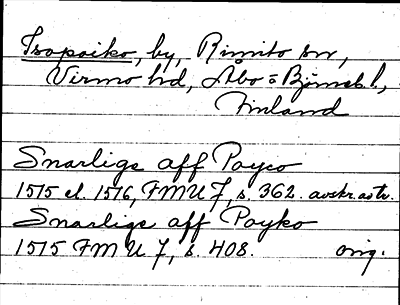 Isopoiko, by, Rimito sn,
Virmo hd, Åbo o Björneb. l,
Finland
Snarlige aff Poyco
1515 el. 1516, FMU 7, s. 362. avskr.
Snarlige aff Poyko
1515 FMU 7, s. 408. orig.